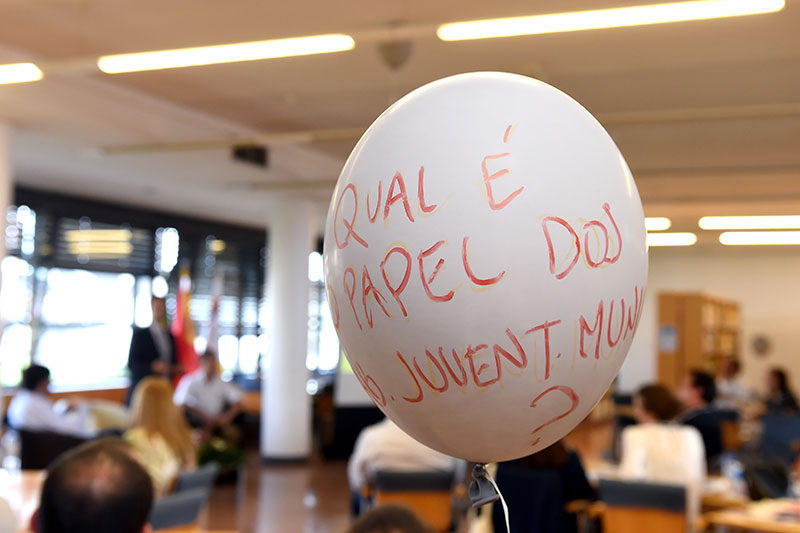 QUAL É
O PAPEL DOS
JUVENT. MUN
?